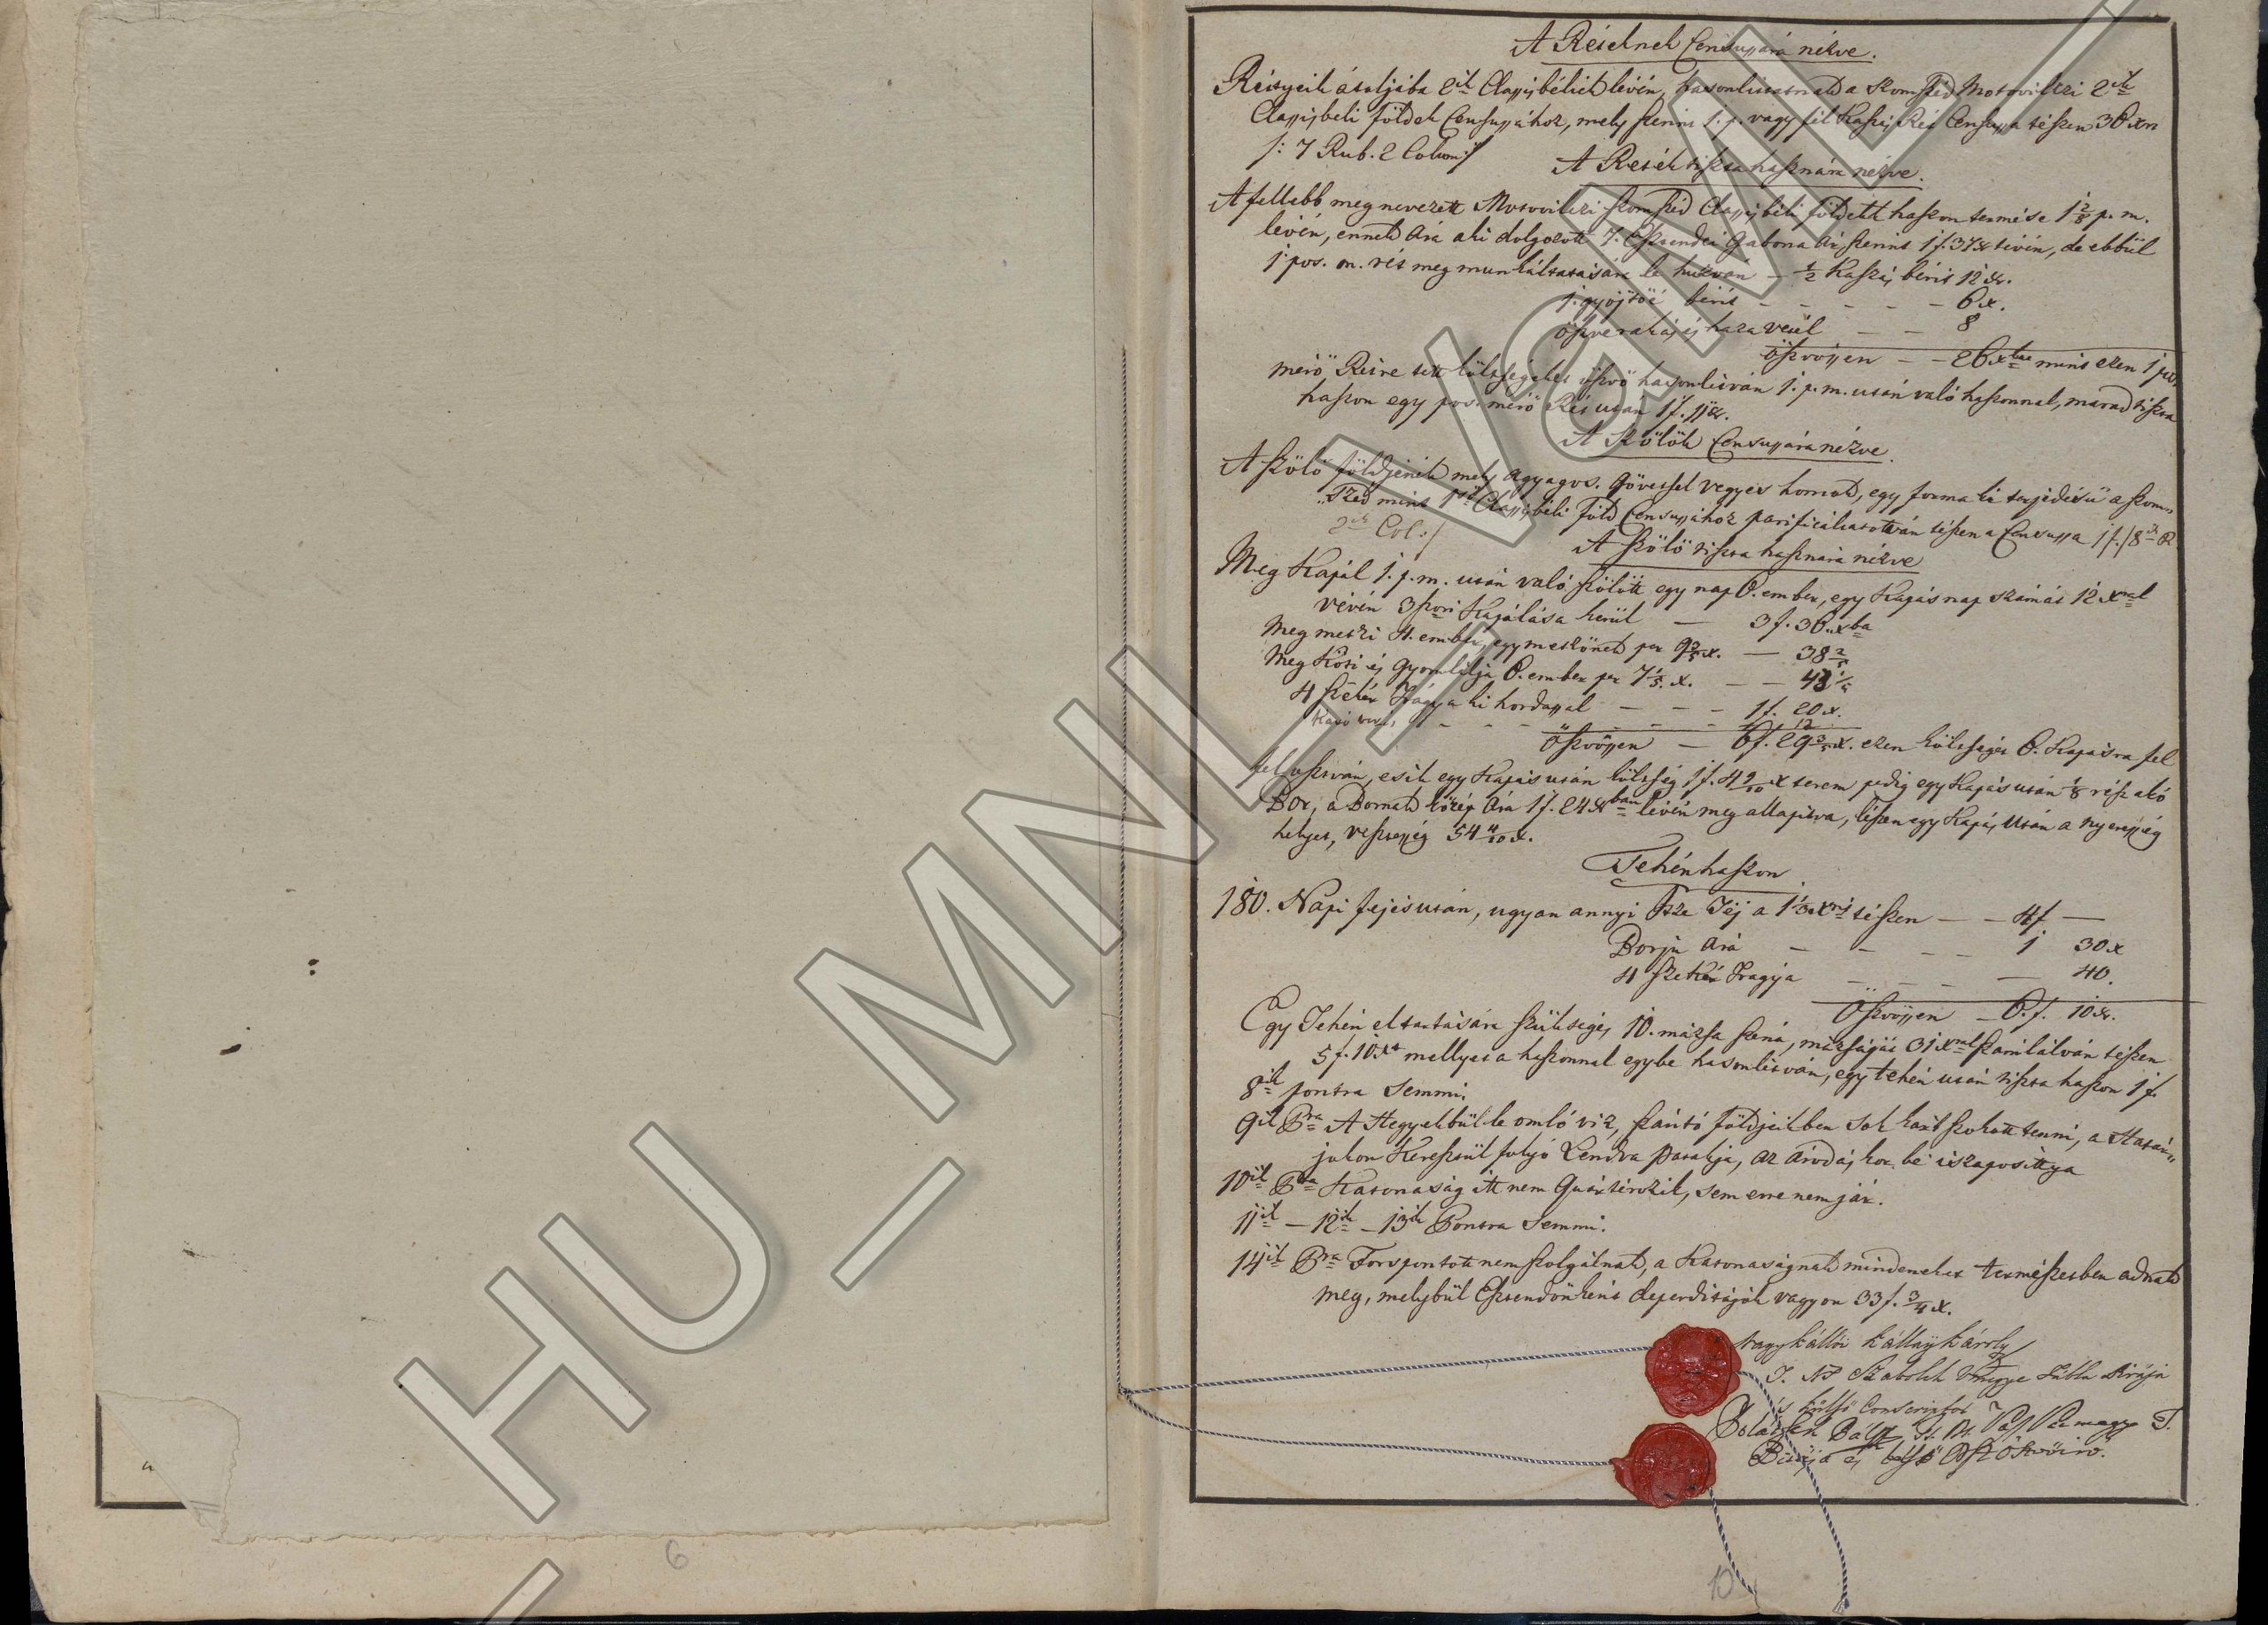 A Réteknek Censussára nézve.
Réttyeik átaljába 2ik Classisbéliek lévén, hasonlittatnak a szomszéd Motoviltzi 2ik
Classisbeli földek Censussához, mely szerint 1. p. vagy fél Kaszás Rét Censussa tészen 36 xrt
/: 7 Rub. 2 Colum :/
A Retek tiszta hasznára nézve.
A fellebb meg nevezett Motoviltzi szomszéd Classisbéli földekk haszon termése 1 2/8 p. m.
lévén, ennek Ára a ki dolgozott 7. Esztendei Gabona Ár szerint 1 f. 37 x tévén, de ebbül
1 pos. m. rét meg munkáltatására le huzván – 1/2 Kaszás bérit 12 xr.
1. gyöjtöé bérit – – – – – 6 x.
öszverakás és haza vitel – – 8
Öszvössen – – 26 xtbe mint ezen 1 pos.
mérö Rétre tett költségeket öszvö hasonlitván 1. p. m. után való haszonnal, marad tiszta
haszon egy pos. mérö Rét után 1 f. 11 xr.
A Szölök Censussára nézve.
A szölö földjének mely agyagos. Követsel vegyes homok, egy forma ki terjedésü a szom„
„széd mint 1ső Classisbéli föld Censussához parificáltatotván tészen a Censussa 1 f. /8ik R
2ik Col :/
A szölö tiszta hasznára nézve
Meg Kapál 1. p. m. után való szölött egy nap 6. ember, egy Kapás nap számát 12 xral
vévén 3szori Kapálása kerül – 3 f. 36 „xba
Meg metszi 4. ember, egy metszönek per 9 3/5 x. – 38 2/5
Meg Köti és gyomlálja 6. ember per 7 1/5. x. – – 43 1/5
4 szekér Trágya ki hordassal – – – 1 f. 20 x.
Karó – – – – – – 12
Öszvössen – 6 f. 29 3/5 x. ezen költséget 6. Kapásra fel
fel osztván, esik egy Kapás után költség 1 f. 4 9/10 x terem pedig egy Kapás után 1/8 rész akó
Bor, a Bornak közép Ára 1 f. 24 xban lévén meg allapitva, lészen egy Kapás Után a nyeresség
helyet, vesztesség 54 4/10 x.
Tehénhaszon
180. Napi fejés után, ugyan annyi Itze Téj a 1 1/3 xrt tészen – – 4 f –
Borju ára – – – – 1 30 x
4 szekér Tragya – – – – 40.
Öszvössen – 6. f. 10 xr.
Egy Tehén eltartására szükséges 10. mázsa széna, mázsáját 31 xral számlálván tészen
5 f. 10 xt mellyet a haszonnal egybe hasonlitván, egy tehén után tiszta haszon 1 f.
8ik pontra semmi.
9ik Pra A Hegyekbül le omló viz, szántó földjeikben sok kárt szokott tenni, a Határ„
jukon Keresztül folyó Lendva Patakja, az árodáskor bé iszaposittya
10ik Pra Katonaság itt nem Quártérozik, sem erre nem jár.
11ik – 12ik – 13ik Pontra semmi.
14ik Pra Forspontott nem szolgálnak, a Katonaságnak mindeneket természetben adnak
meg, melybül Esztendönként deperditájok vagyon 33 f. 3/4 x.
Nagykállói Kállay Károly
T. N. Szabolch Vmegye Tábla Birája
s külső Conscriptor
Bálint T. N. Vas Vármegye T.
Birája és belső Öszveiró.
6
10
HU_MNL_